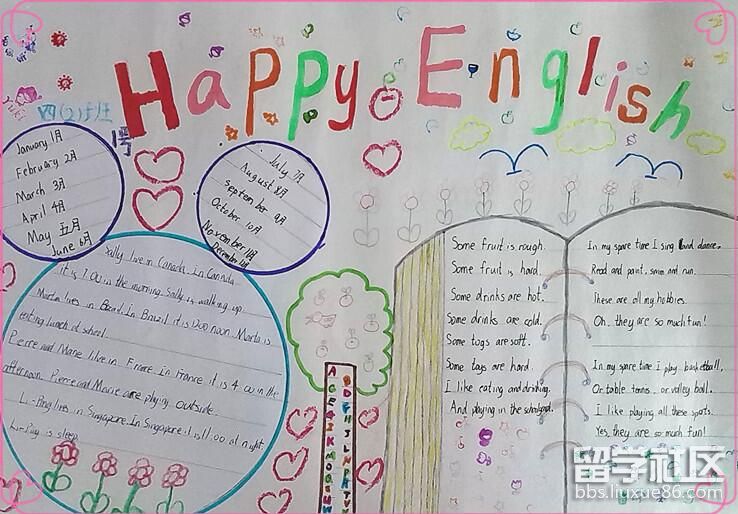 Happy English
四(2)班
January 1月
February 2月
March 3月
April 4月
May 五月
June 6月
July 7月
August 8月
September 9月
October 10月
November 11月
December 12月
Sally live in Canada. In Canada
it is 7.00 in the morning. Sally is walking up.
Marta lives in Brazil. In Brazil it is 12.00 noon. Marta is
eating lunch at school.
Pierre and Marie live in France. In France it is 4.00 in the
afternoon. Pierre and Marie are playing outside.
Li-Ping lives in Singapore. In Singapore it is 11.00 at night.
Li-Ping is sleep
Some fruit is rough.
Some fruit is hard.
Some drinks are hot.
Some drinks are cold.
Some toys are soft.
Some toys are hard.
I like eating and drinking.
And playing in the schoolyard.
In my spare time I sing and dance.
Read and paint, swim and run.
These are all my hobbies.
Oh, they are so much fun!
In my spare time I play basketball,
Or table tennis, or valley ball.
I like playing all these sports.
Yes, they are so much fun!
留学社区
bbs.liuxue86.com